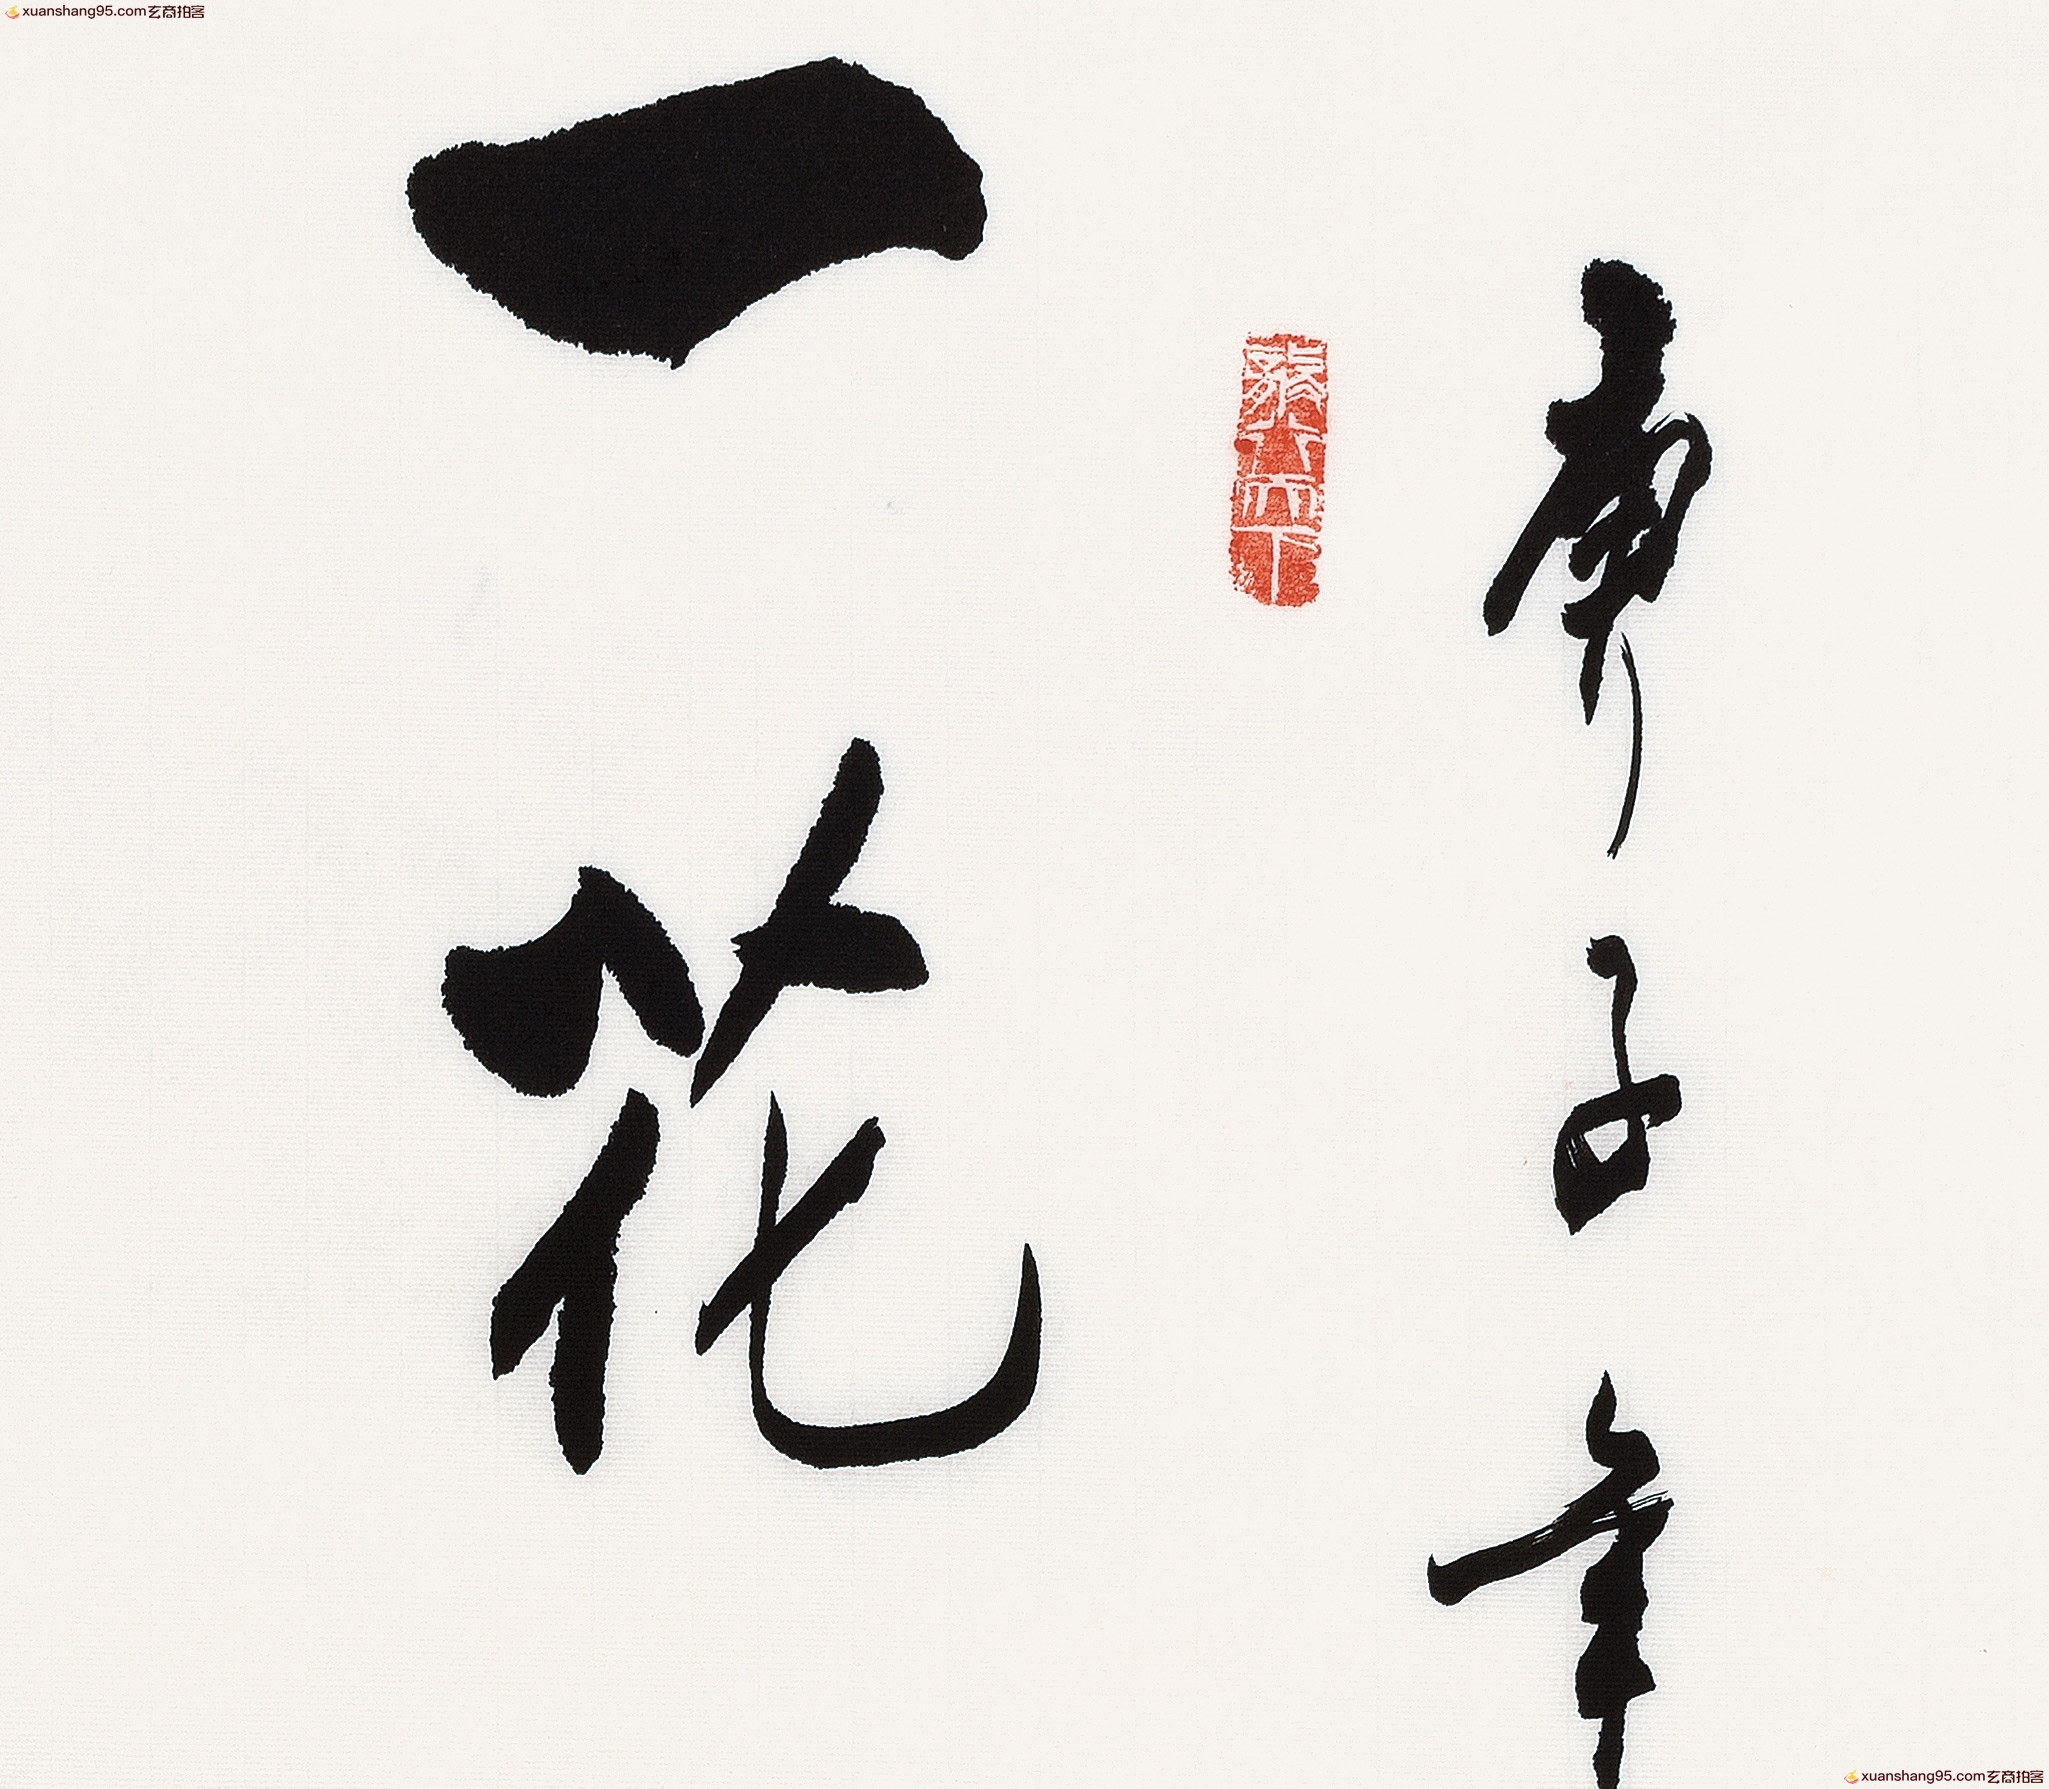 xuanshang95.com玄商拍客
庚子年
一花
xuanshang95.com玄商拍客